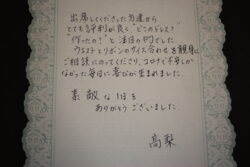 出席してくださった友達から
とても評判が良く、"どこのドレス?
作ったの?"と注目の的でした。
ウエストとリボンのサイズ合わせを親身に
ご相談にのってくださり、コロナで不安しか
なかった毎日に喜びが生まれました。
素敵な1日を
ありがとうございました。
高梨